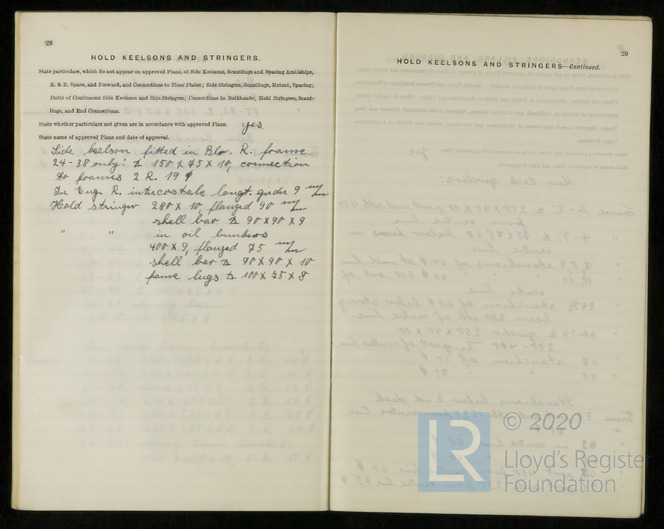 28
HOLD KEELSONS AND STRINGERS.
State particulars, which do not appear on approved Plans, of Side Keelsons, Scantlings and Spacing Amidships,
E. & B. Space, and Forward, and Connections to Floor Plates; Side Stringers, Scantlings, Extent, Spacing;
Butts of Continuous Side Keelsons and Side Stringers; Connections to Bulkheads; Hold Stringers, Scant-
lings, and End Connections.
State whether particulars not given are in accordance with approved Plans. yes
State name of approved Plans and date of approval.
Side keelson fitted in Blr. R. frame
24-38 only: 150 x 75 x 10, connection
to frames 2 R. 19
In Eng. R. intercostals longt. girder 9 m/m
Hold stringer 280 x 10, flanged 90 m/m
shell bar 90 x 90 x 9
" " in oil bunkers
400 x 9, flanged 75 m/m
shell bar 90 x 90 x 10
frame lugs 100 x 75 x 8
29
HOLD KEELSONS AND STRINGERS—Continued.
LR © 2020
Lloyd's Register
Foundation